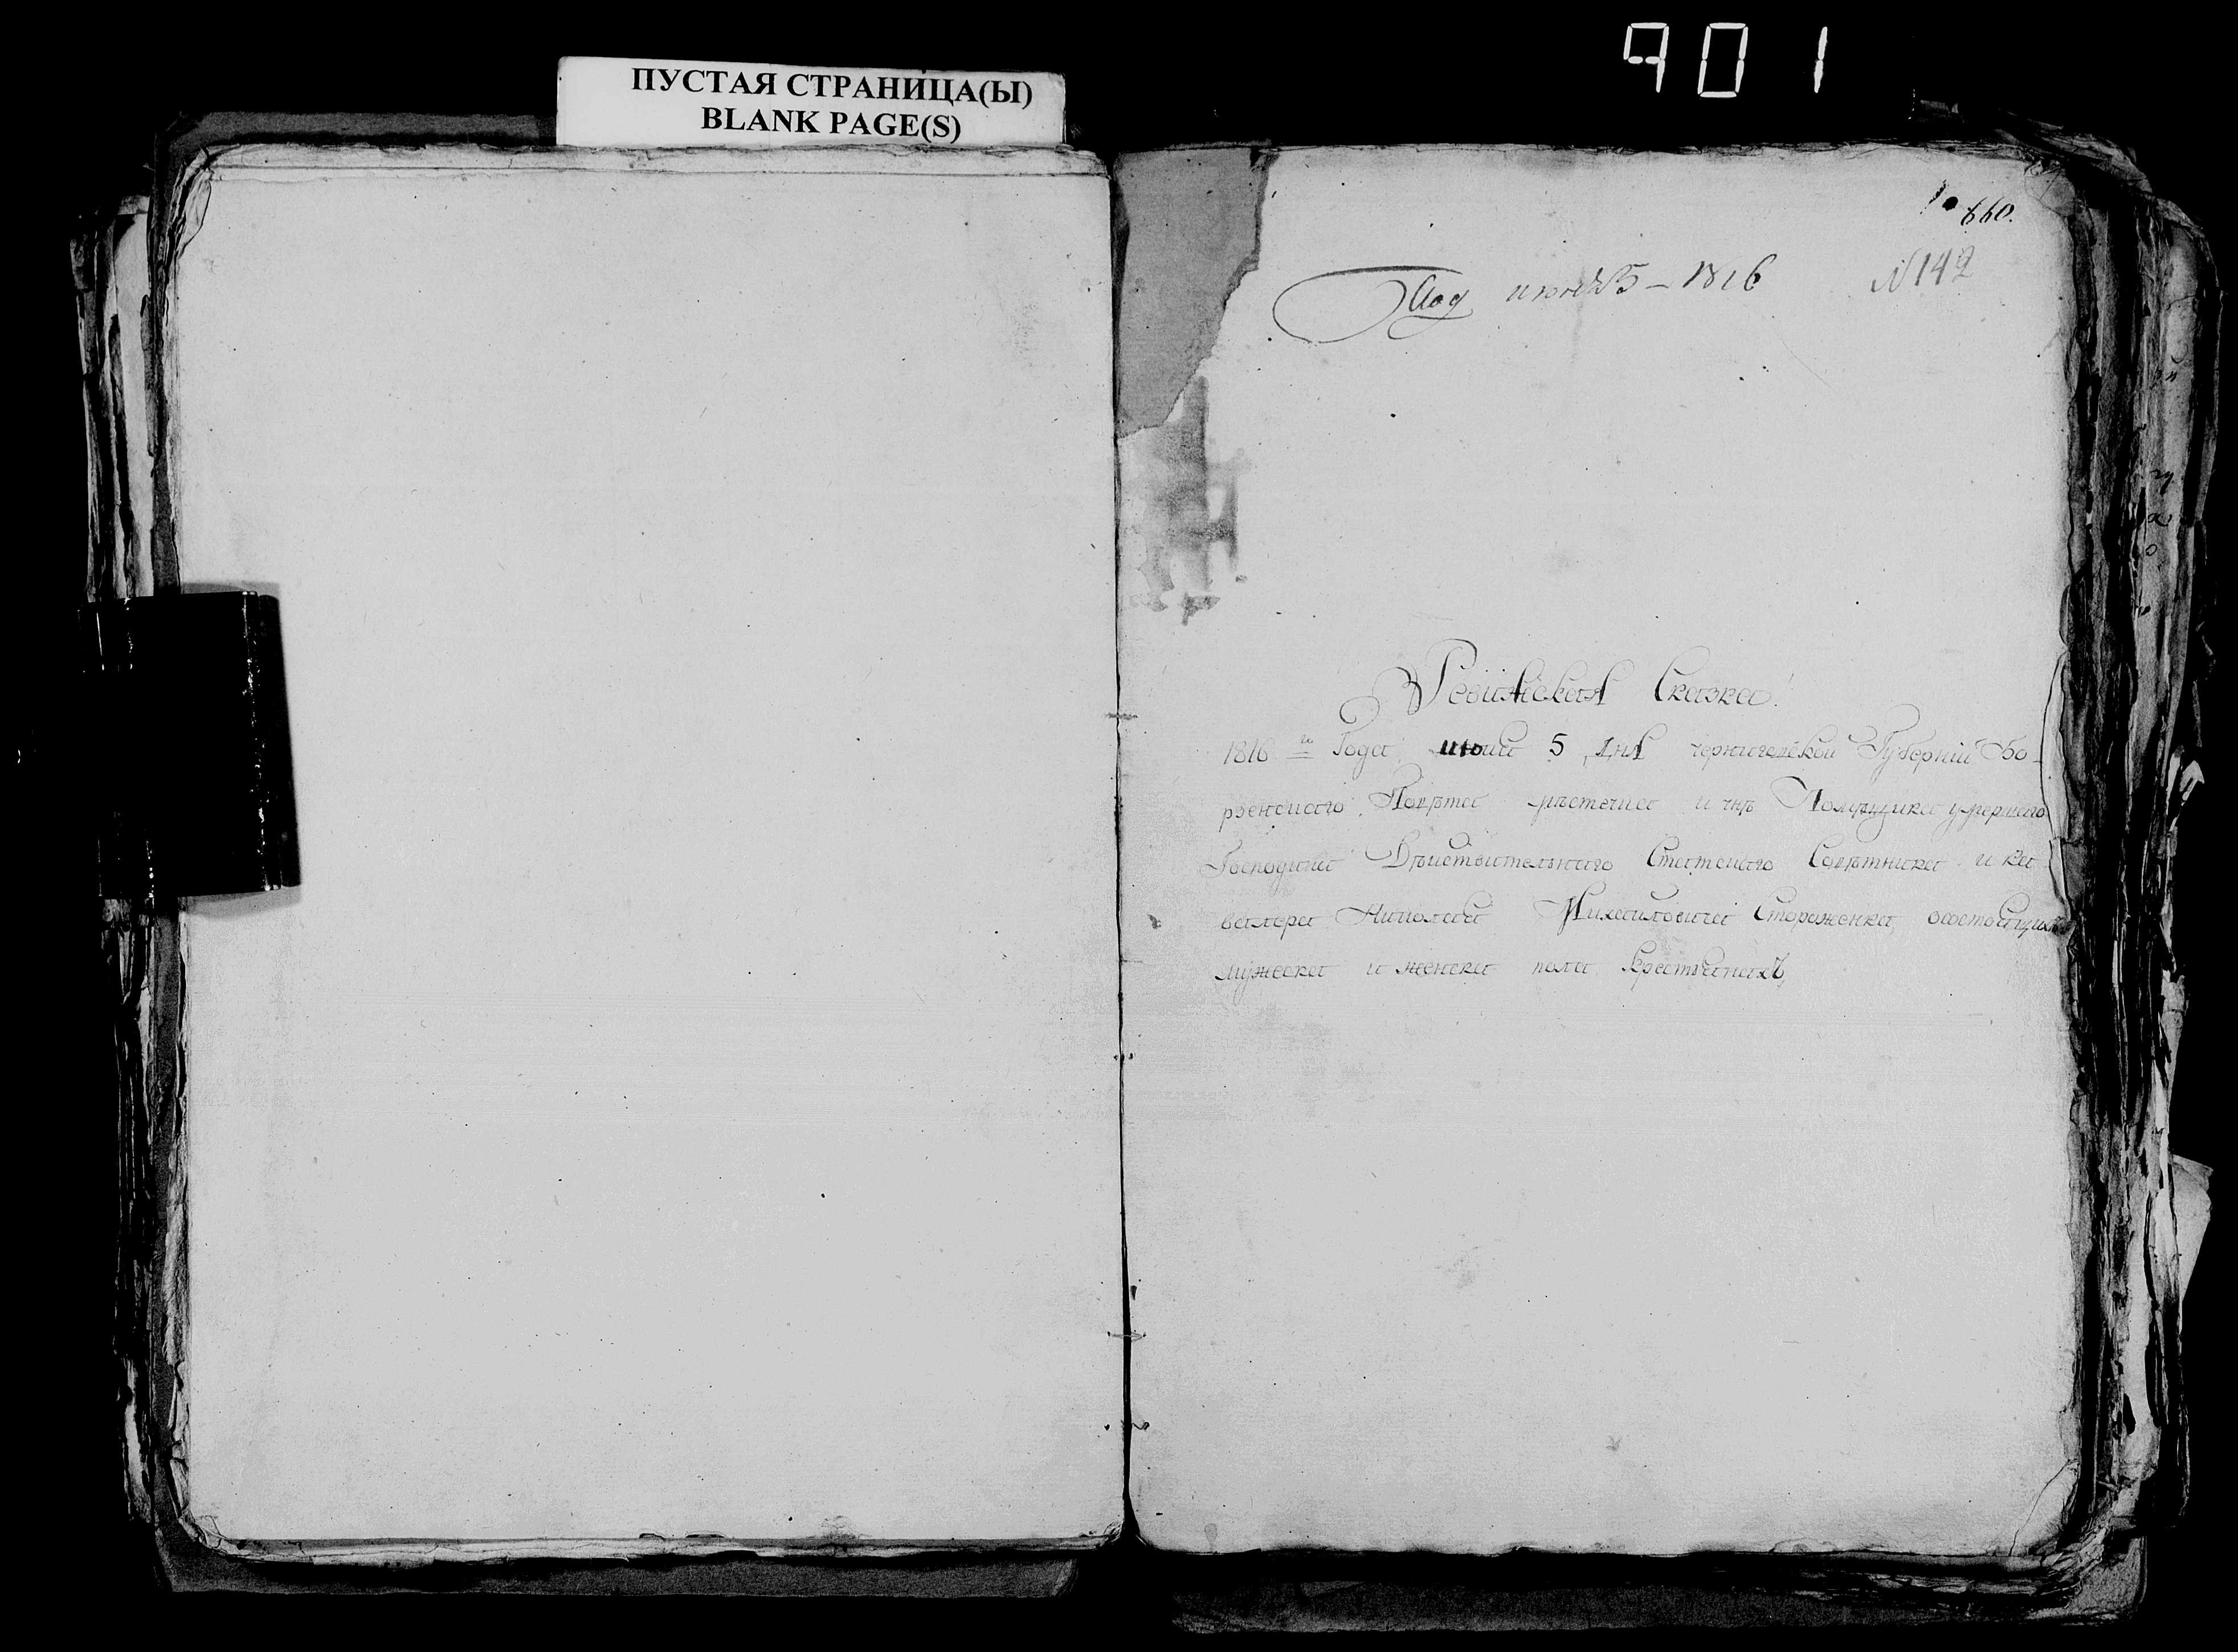 901
ПУСТАЯ СТРАНИЦА(Ы)
BLANK PAGE(S)
660.
Под июня 5 – 1816 N 142
Ревижская Сказка.
1816 го Года июня 5 дня черниговской Губернии Бо-
рзенского Повета местечка Помещика умершаго
Господина Действительнаго Статскаго Советника и ка
валера Николая Михаиловича Стороженка, осостоящихъ
мужеска и женска пола крестьянахъ,